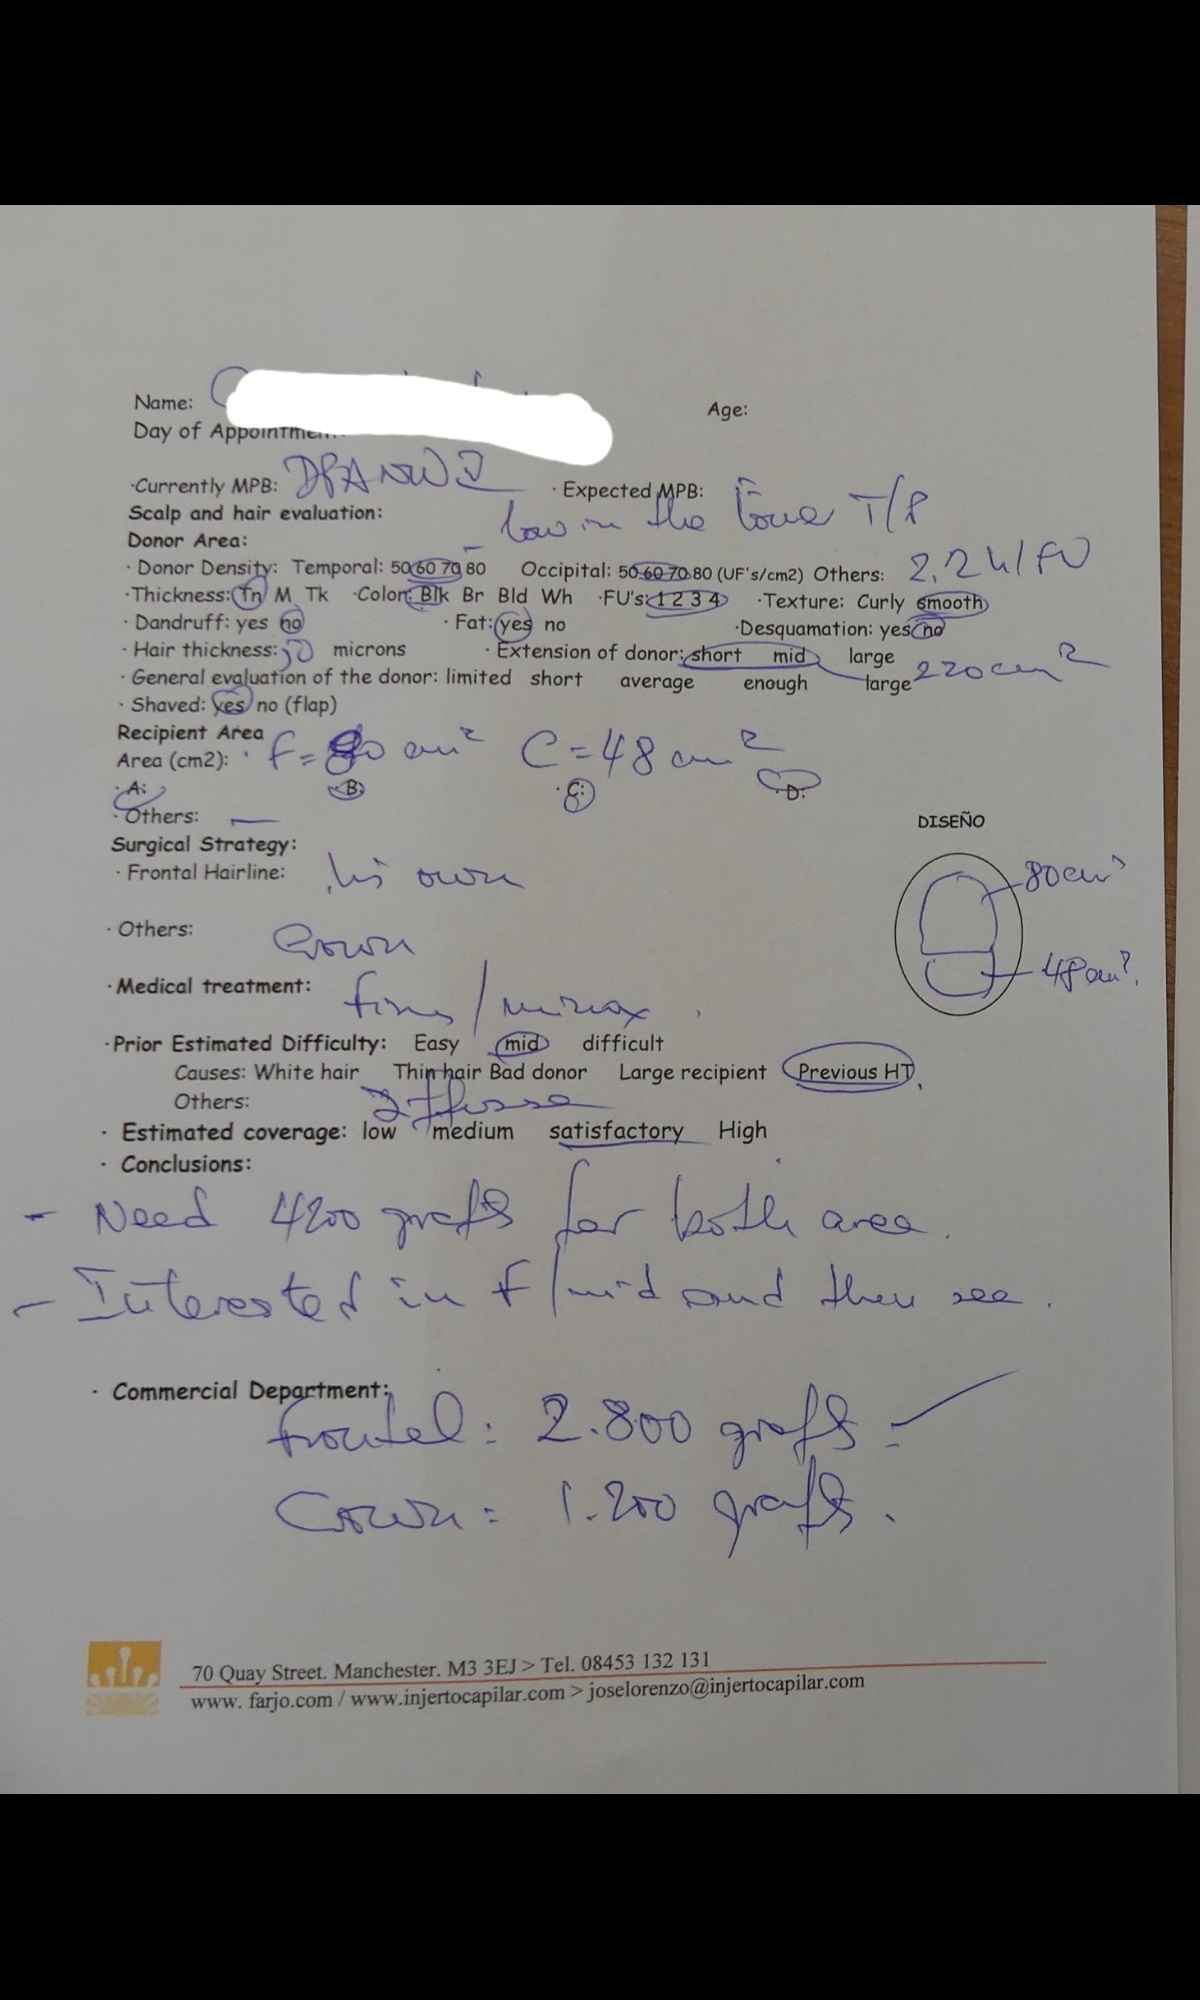 Name:
Age:
Day of Appointment:
·Currently MPB: DPA NW V · Expected MPB:
Scalp and hair evaluation: - low in the lower T/P
Donor Area:
· Donor Density: Temporal: 50 60 70 80 Occipital: 50 60 70 80 (UF's/cm2) Others: 2.2 h/FU
·Thickness: Tn M Tk ·Color: Blk Br Bld Wh ·FU's: 1 2 3 4 ·Texture: Curly smooth
· Dandruff: yes no · Fat: yes no ·Desquamation: yes no
· Hair thickness: microns · Extension of donor: short mid large 220 cm²
· General evaluation of the donor: limited short average enough large
· Shaved: yes no (flap)
Recipient Area
Area (cm2): · F = 80 cm² C = 48 cm²
· A: B: · C: · D:
· Others: —
DISEÑO
Surgical Strategy:
80cm²
· Frontal Hairline: his own
· Others: Crown
48cm².
·Medical treatment: finas/minox.
·Prior Estimated Difficulty: Easy mid difficult
Causes: White hair Thin hair Bad donor Large recipient Previous HT,
Others: Diffusse
· Estimated coverage: low medium satisfactory High
· Conclusions:
- Need 4200 grafts for both area.
- Interested in F/mid and then see.
· Commercial Department:
Frontel: 2.800 grafts.
Crown: 1.200 grafts.
70 Quay Street. Manchester. M3 3EJ > Tel. 08453 132 131
www. farjo.com / www.injertocapilar.com > joselorenzo@injertocapilar.com